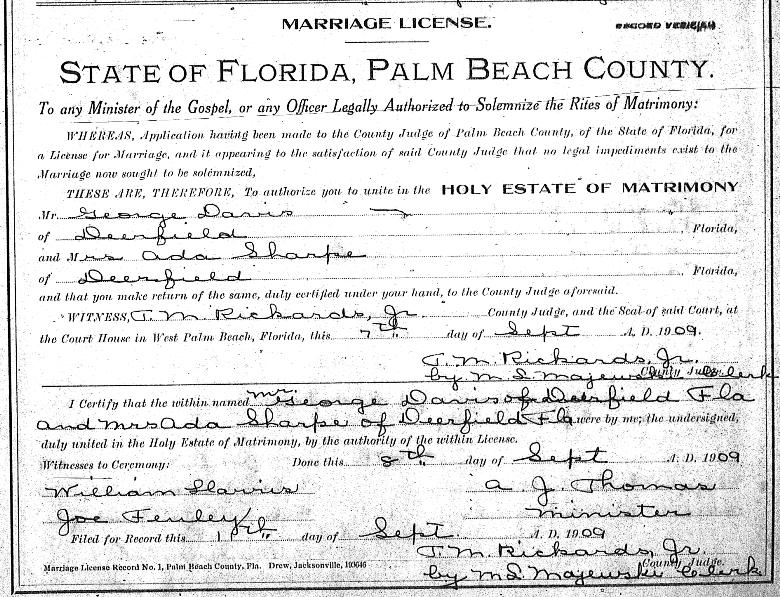 MARRIAGE LICENSE.
RECORD VERIFIED
STATE OF FLORIDA, PALM BEACH COUNTY.
To any Minister of the Gospel, or any Officer Legally Authorized to Solemnize the Rites of Matrimony:
WHEREAS, Application having been made to the County Judge of Palm Beach County, of the State of Florida, for
a License for Marriage, and it appearing to the satisfaction of said County Judge that no legal impediments exist to the
Marriage now sought to be solemnized,
THESE ARE, THEREFORE, To authorize you to unite in the HOLY ESTATE OF MATRIMONY
Mr. George Davis
of Deerfield, Florida,
and Mrs Ada Sharpe
of Deerfield, Florida,
and that you make return of the same, duly certified under your hand, to the County Judge aforesaid.
WITNESS, T. M. Rickards, Jr. County Judge, and the Seal of said Court, at
the Court House in West Palm Beach, Florida, this 7th day of Sept A. D. 1909.
T. M. Rickards, Jr.
County Judge.
by M. S. Majewski Clerk
I Certify that the within named Mr. George Davis of Deerfield Fla
and Mrs Ada Sharpe of Deerfield Fla were by me, the undersigned,
duly united in the Holy Estate of Matrimony, by the authority of the within License.
Witnesses to Ceremony: Done this 8th day of Sept A. D. 1909
William A. J. Thomas
Joe Fenley Minister
Filed for Record this day of Sept A. D. 1909
T. M. Rickards, Jr.
Marriage License Record No. 1, Palm Beach County, Fla. Drew, Jacksonville, County Judge.
by M. S. Majewski Clerk